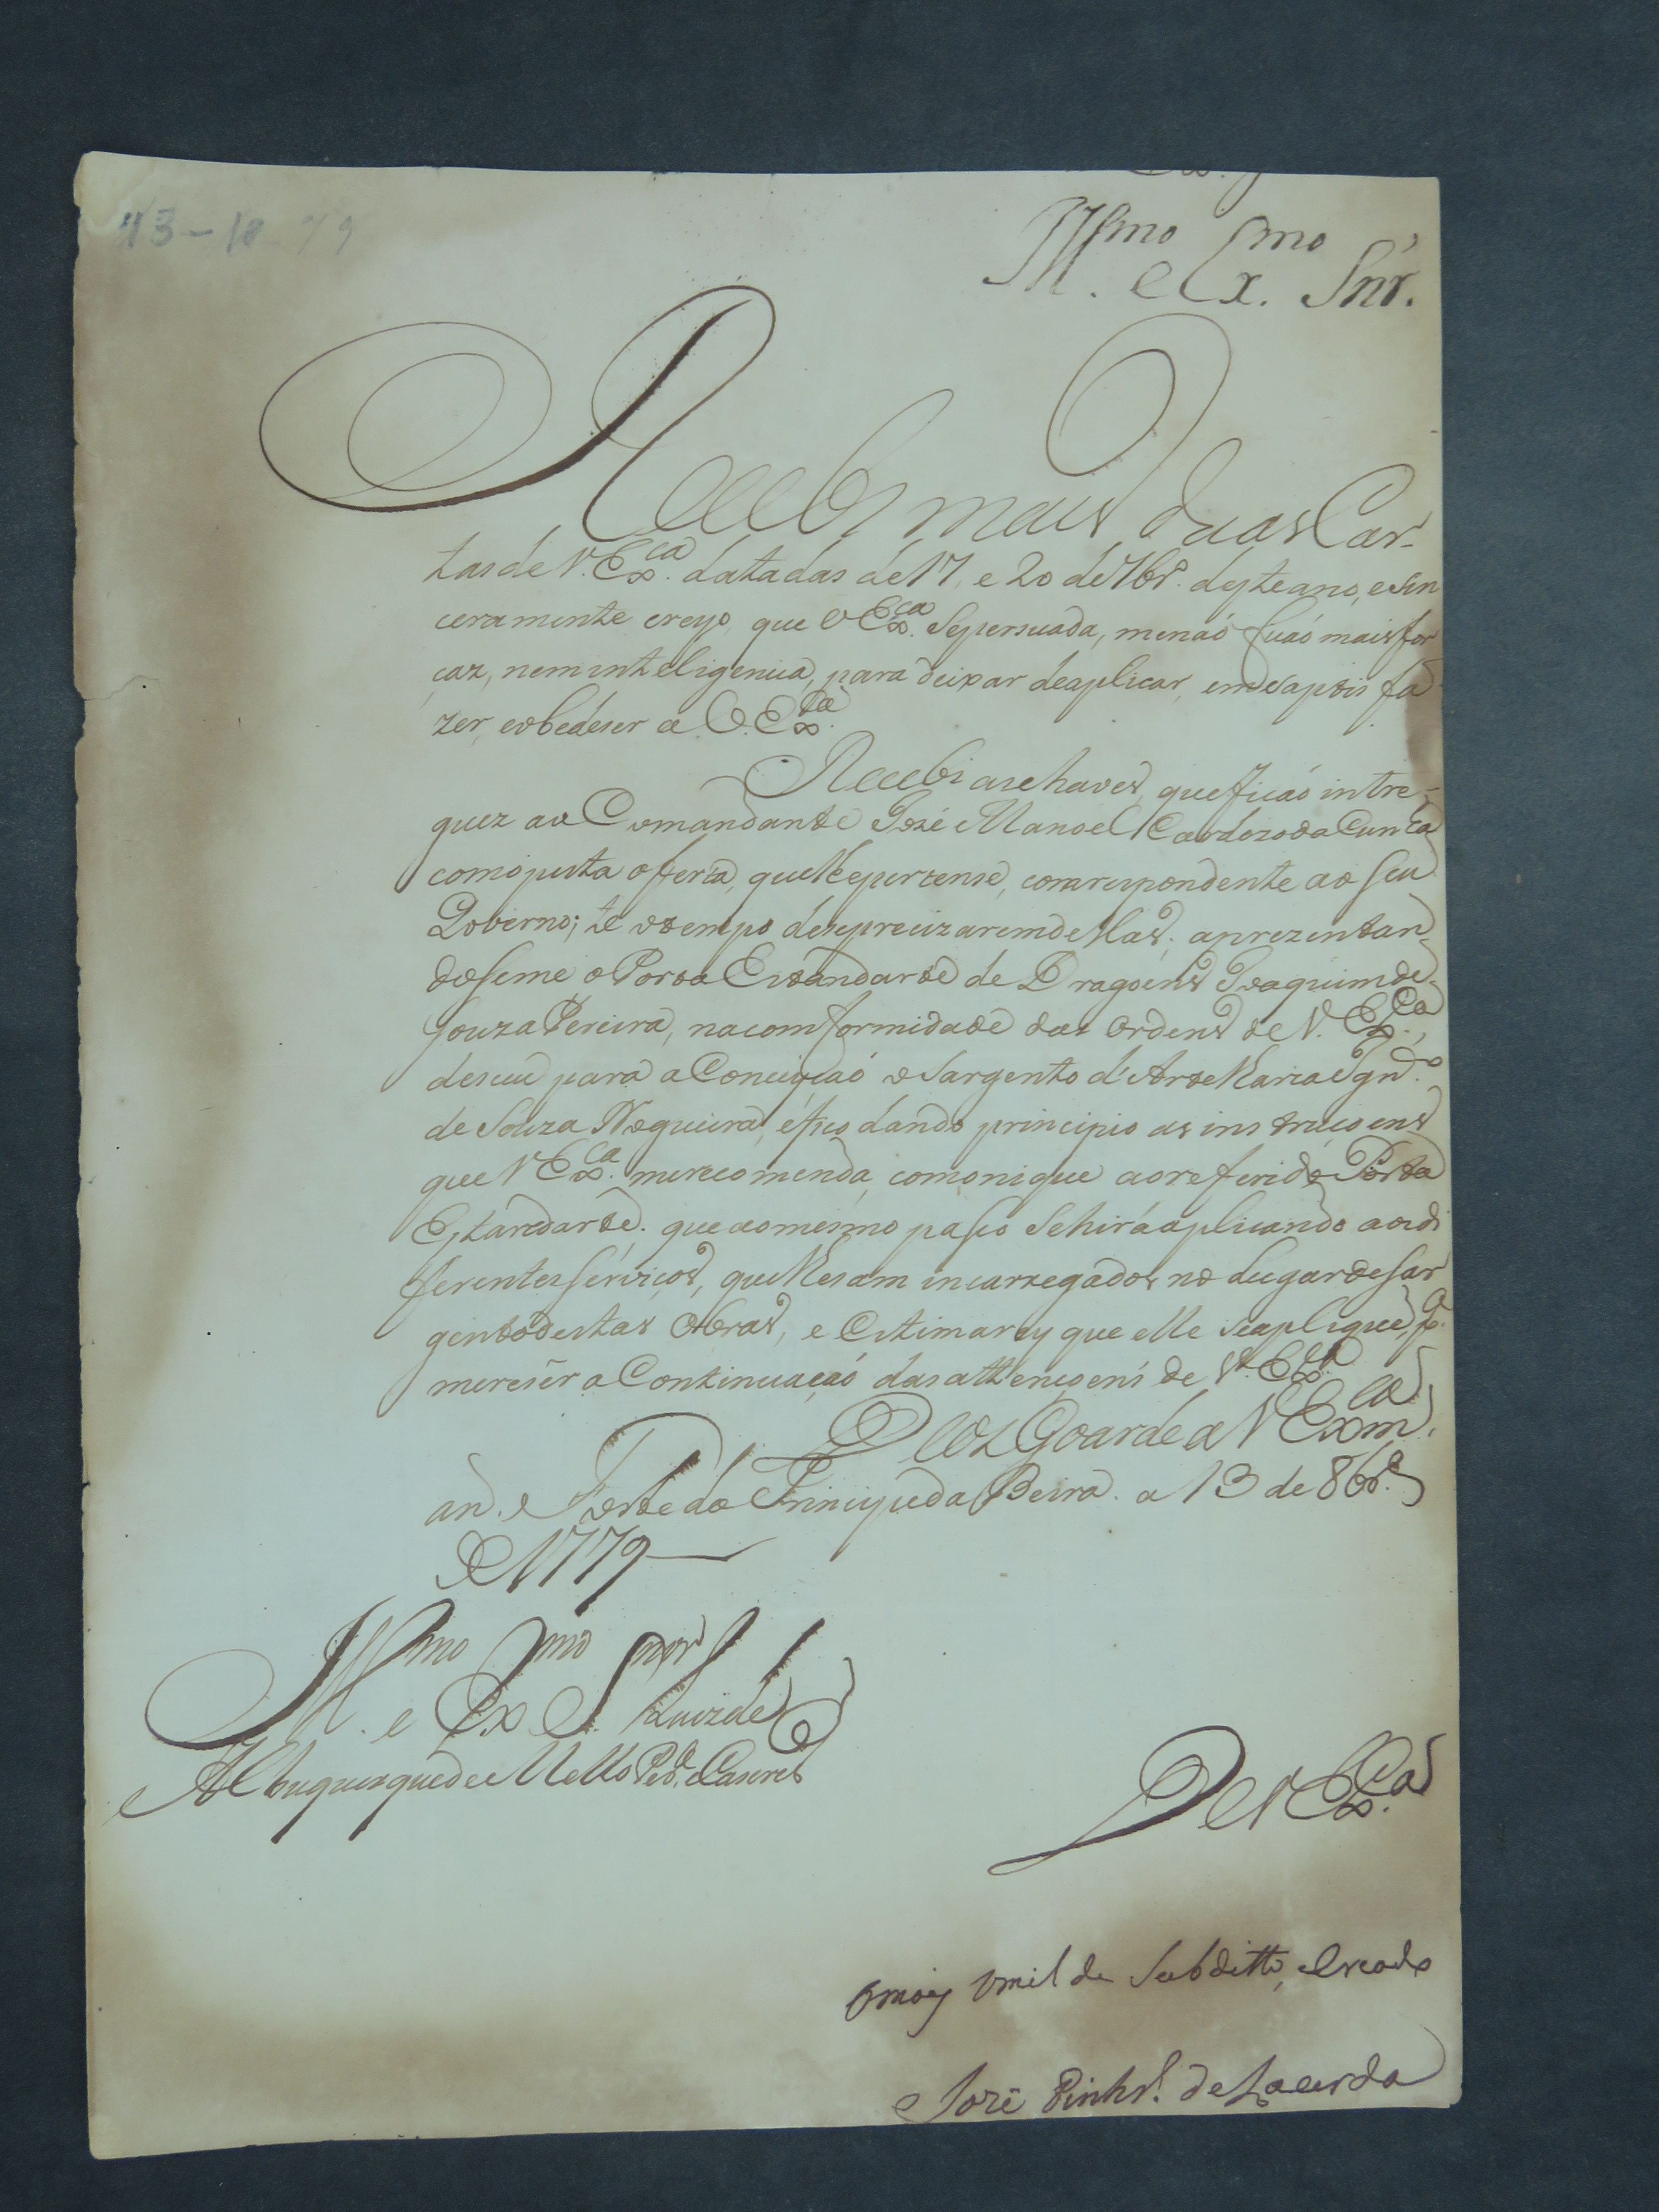 13-10-79
Ill.mo e Ex.mo Snr.
Recebi mais duas Car-
tas de V. Ex.ca datadas de 17, e 20 de 7br.o deste ano, e sin
ceramente creyo, que V Ex.ca Se persuada, me naõ ficaõ mais for
caz, nem inteligencia, para deixar de aplicar, em sa
zer, e obedeser a V. Ex.ca
Recebi as chaves, que ficaõ intre-
guez ao Comandante José Manoel Cardozo da Cunha
como justa oferta, que lhe pertense, comrespondente ao seu
Governo; te o tempo de se precizarem dellas; aprezentan-
do seme o Porta Estandarte de Dragoens Joaquim de
Souza Pereira, na comformidade das Ordens de V. Ex.ca,
desceu para a Conceiçaõ o Sargento d'Artelharia Ign.o
de Souza Nogueira, e fico dando principio as instruçoens
que V Ex.ca me recomenda, comonique ao referido Porta
Estandarte. que ao mesmo paso se hirá aplicando aos di
ferentes serviços, que lhe sam incarregados no Lugar de Sar
gento destas Obras, e Estimarey que elle se aplique, p.a
mereser a Continuaçaõ das attençoens de V. Ex.ca
Deos Goarde a V Ex.ca m.
an. Forte do Principe da Beira. a 13 de 8br.o
de 1779
Ill.mo e Ex.mo Snor Luiz de
Albuquerque de Mello Per.a e Caseres
De V Ex.ca
O mais Umilde Subditto, e Creado
Joze Pinhr.o de Lacerda